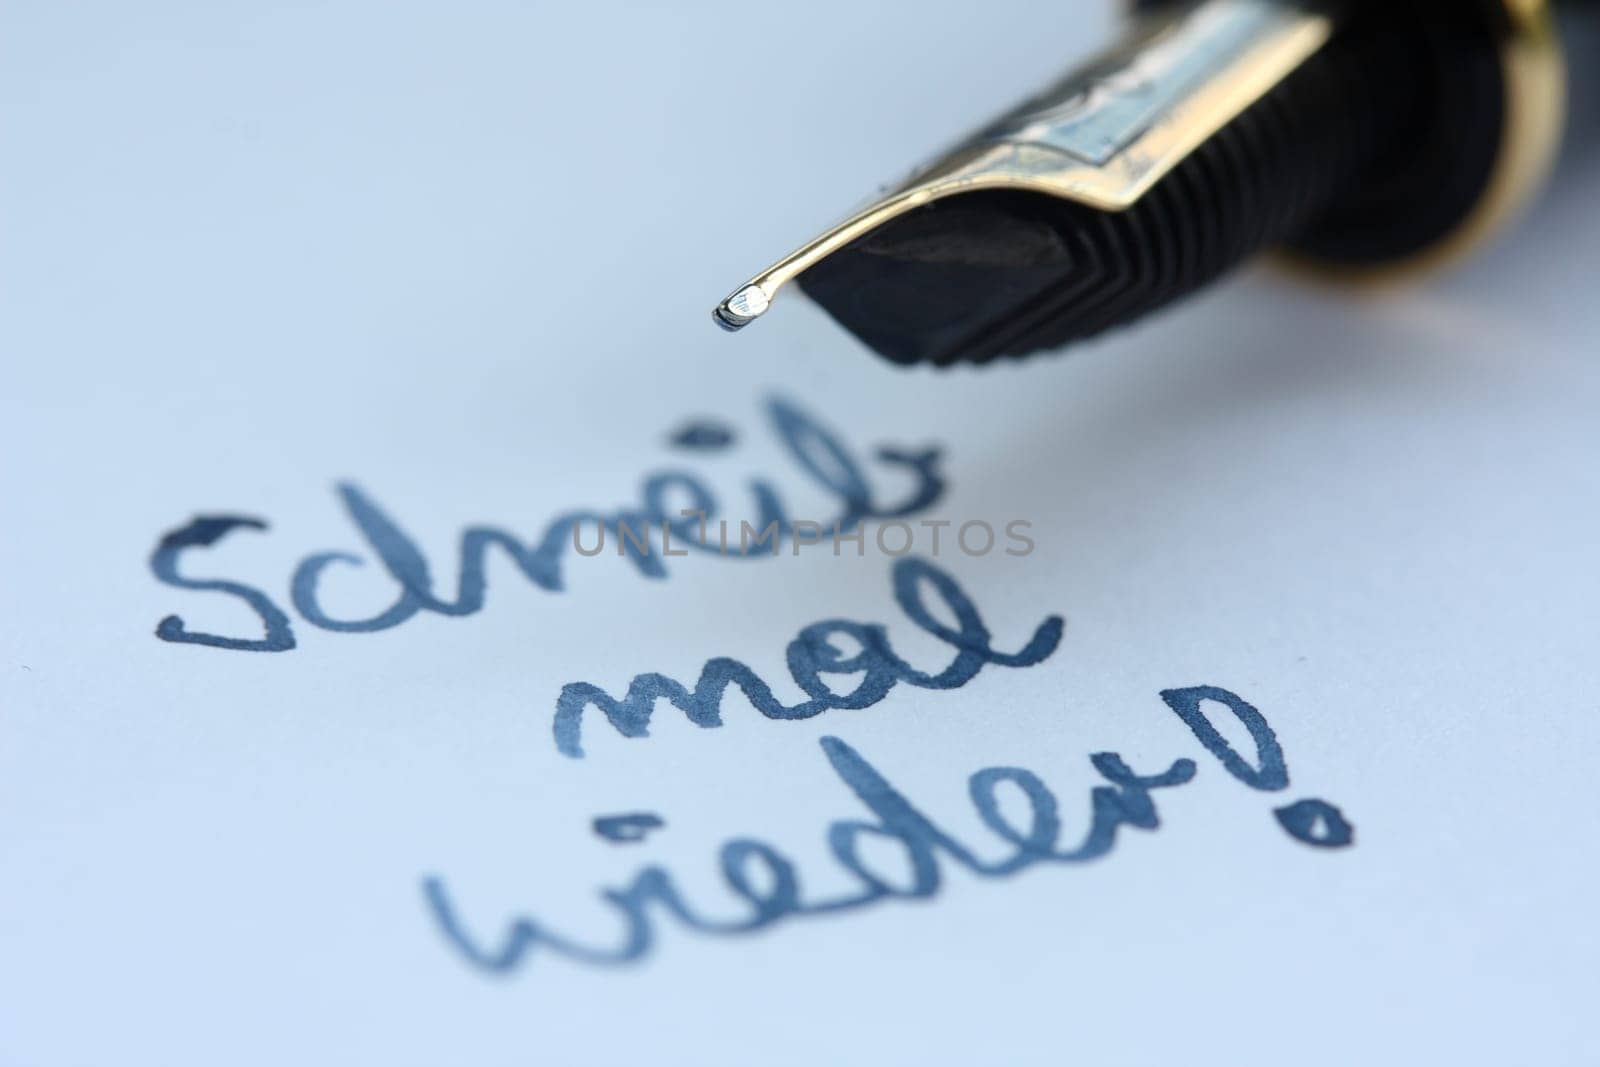 Schreib
mal
wieder!
UNLIMPHOTOS